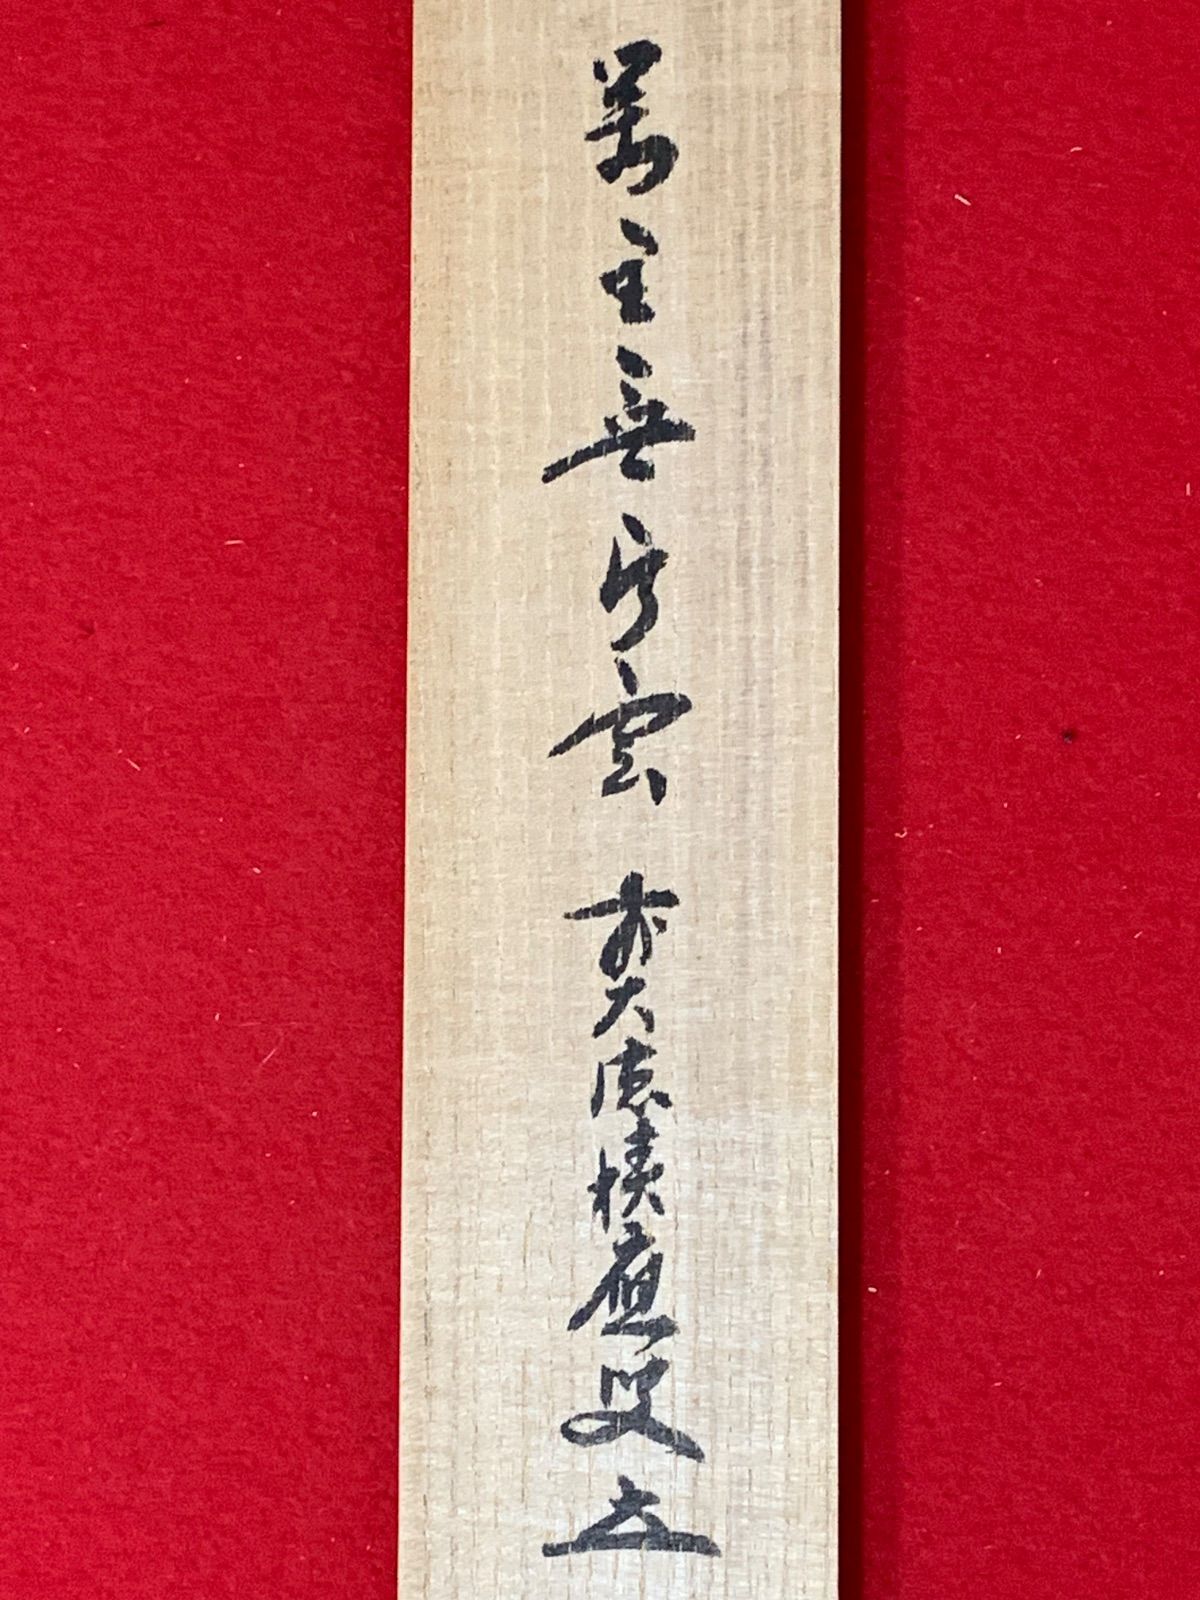 萬里無片雲 前大徳積應叟 五